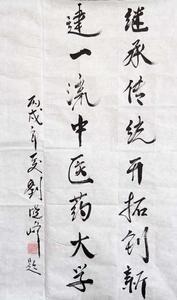 继承传统开拓创新
建一流中医药大学
丙戌年夏刘晓峰题